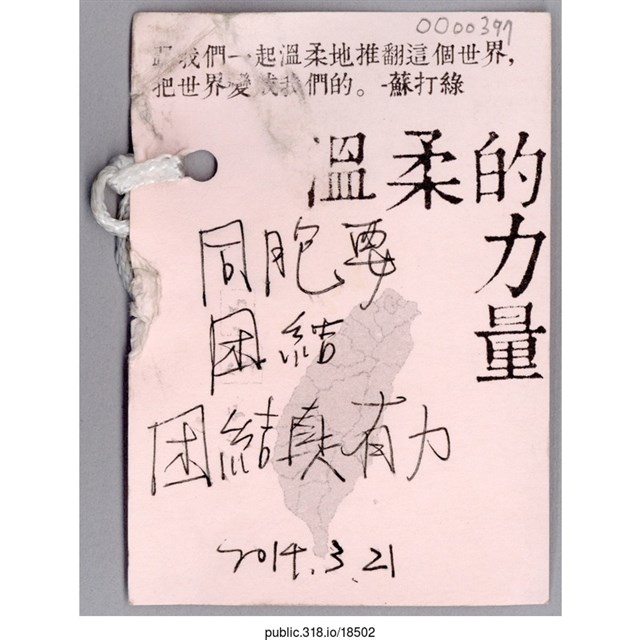 0000397
跟我們一起溫柔地推翻這個世界,
把世界變成我們的。-蘇打綠
溫柔的力量
同胞要
困結
困結真有力
2014.3.21
public.318.io/18502